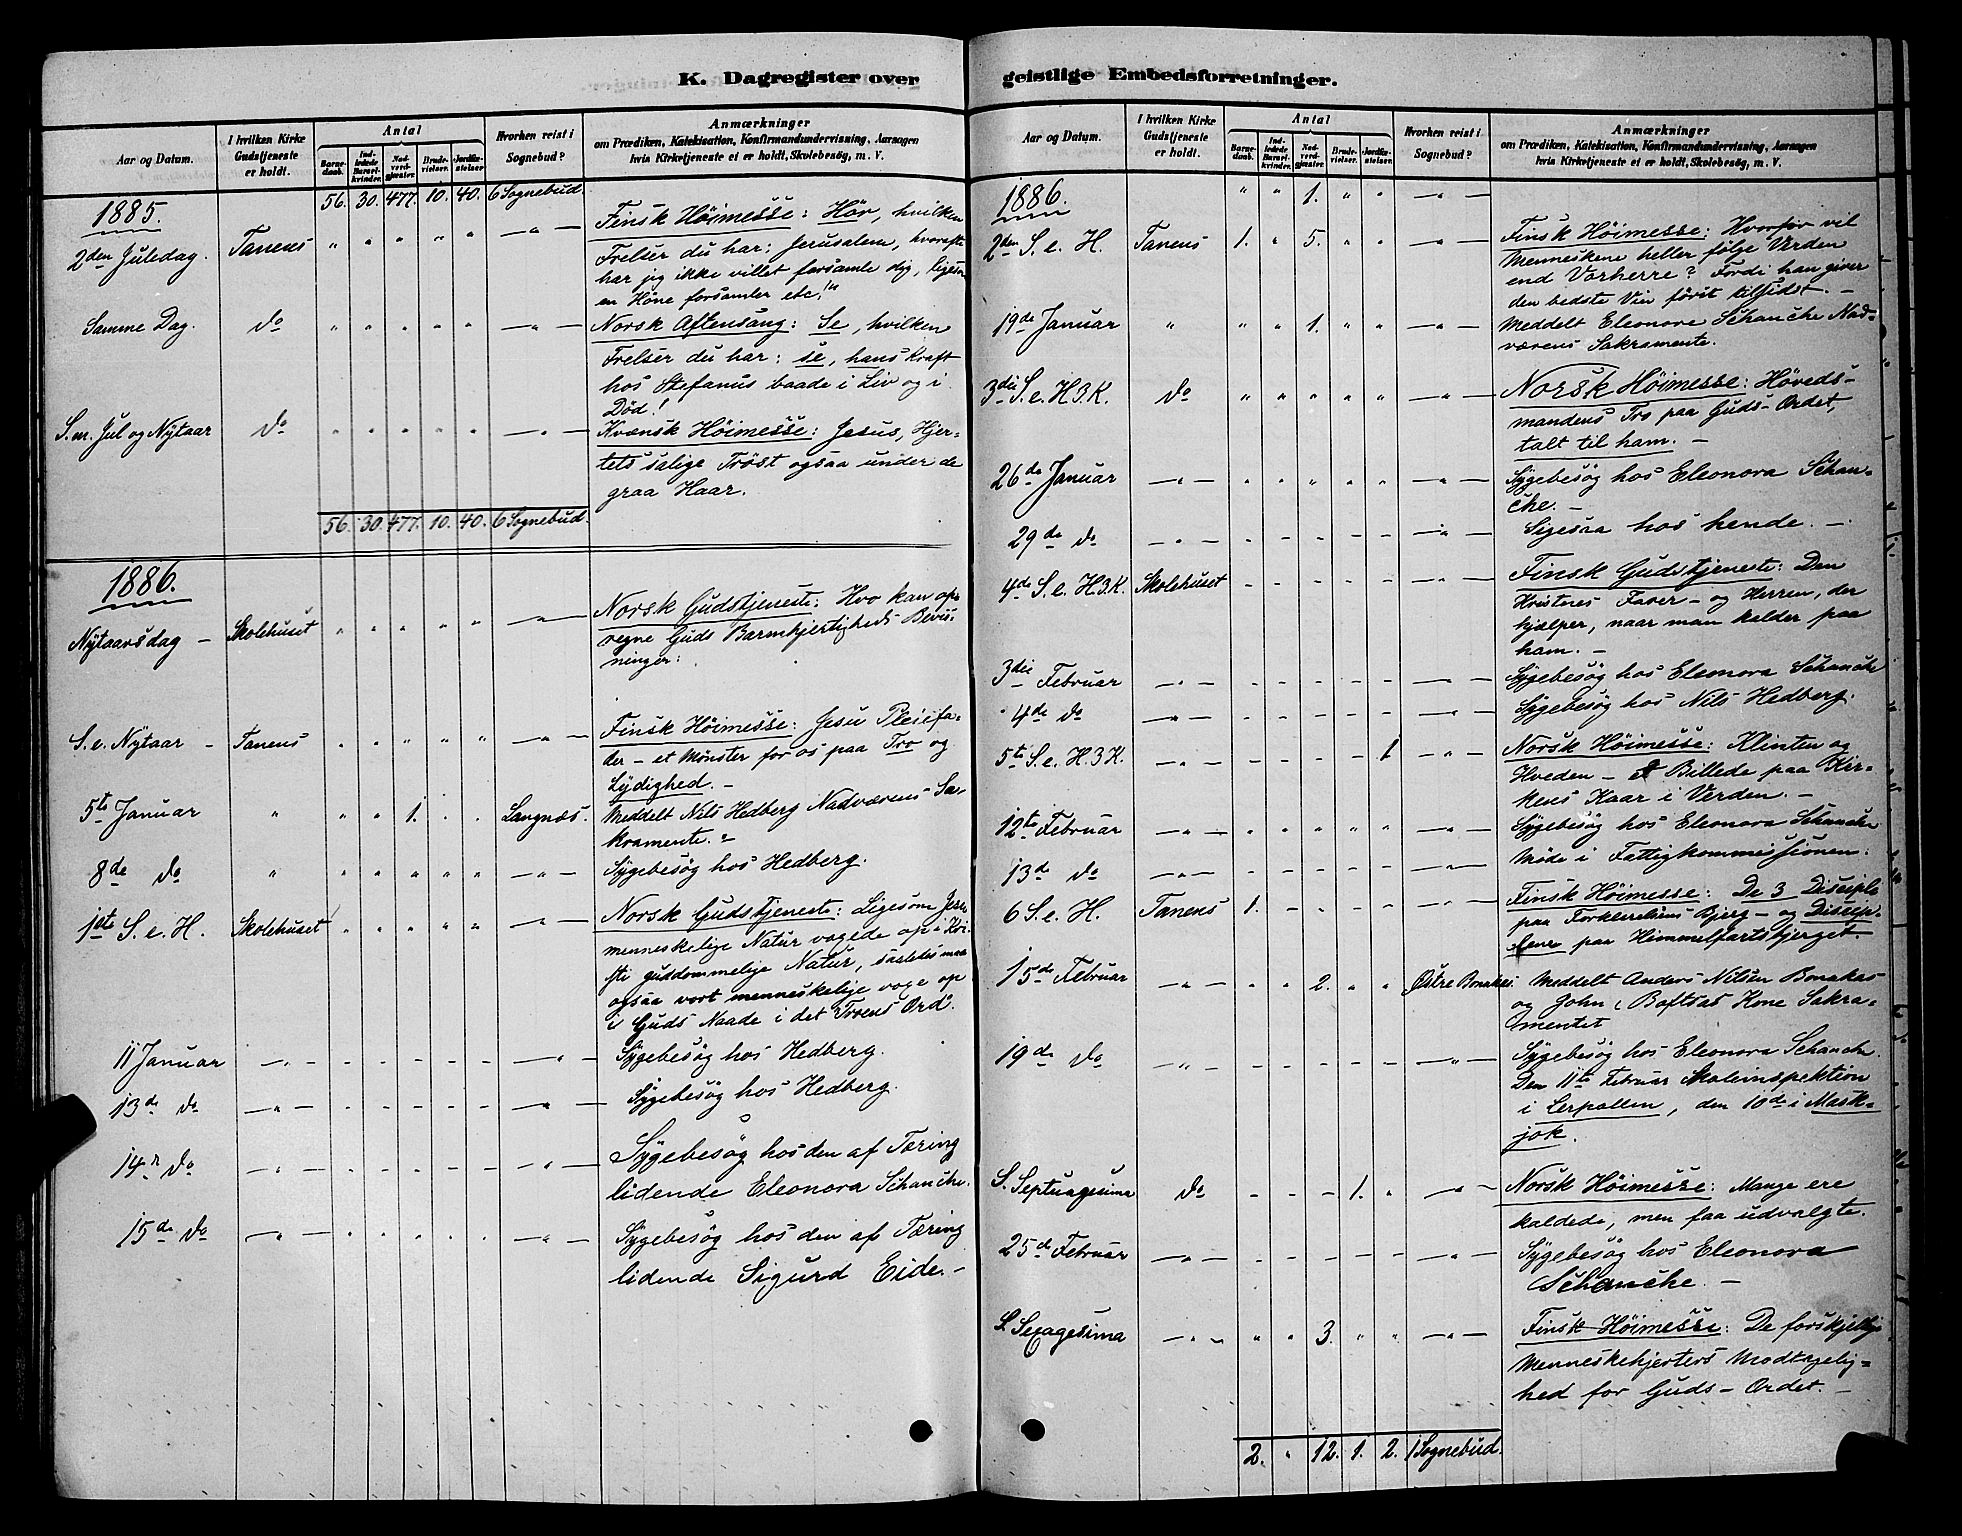 K. Dagregister over
Aar og Datum.
I hvilken Kirke Gudstjeneste er holdt.
Antal
Barnedaab.
Indledede Barselkvinder.
Nadverdgjæster.
Brudevielser.
Jordfæstelser.
Hvorhen reist i Sognebud?
Anmærkninger
om Prædiken, Katekisation, Konfirmandundervisning, Aarsagen
hvis Kirketjeneste ei er holdt, Skolebesøg, m. V.
56. 30. 477. 10. 40. 6 Sognebud
1885.
2den Juledag. Tanens " " " " " — " — Finsk Höimesse: Hör, hvilken
Frelser du har: Jerusalem, hvorofte
har jeg ikke villet forsamle dig, ligesom
en Höne forsamler etc!"
Samme Dag. do " " " " " — " — Norsk Aftensang: Se, hvilken
Frelser du har: se, hans Kraft
hos Stefanus baade i Liv og i
Död!
S. m. Jul og Nytaar do " " " " " — " — Kvænsk Höimesse: Jesus, Hjer-
tets salige Tröst ogsaa under de
graa Haar.
56. 30. 477. 10. 40. 6 Sognebud.
1886.
Nytaarsdag — Skolehuset " " " " " — " — Norsk Gudstjeneste: Hvo kan op-
regne Guds Barmhjertigheds Bevis-
ninger:
S. e. Nytaar — Tanens " " " " " — " — Finsk Höimesse: Jesu Pleiefa-
der — et Mönster for os paa Tro og
Lydighed. —
5te Januar " " " 1. " " Langnæs. Meddelt Nils Hedberg Nadværens Sa-
kramente. "
8de do " " " " " " — " — Sygebesög hos Hedberg.
1ste S. e. H. Skolehuset " " " " " — " — Norsk Gudstjeneste: Ligesom Jesu
menneskelige Natur vogede op i Kri-
sti guddommelige Natur, saaledes maa
ogsaa vort menneskelige voge op
i Guds Naade i det Troens Ord.
11 Januar — " — - - - - - — " — Sygebesög hos Hedberg.
13de do — " — - - - - - — " — Sygebesög hos Hedberg.
14de do — " — - - - - - — " — Sygebesög hos den af Tæring
lidende Eleonora Schanche.
15de do — " — - - - - - — " — Sygebesög hos den af Tæring
lidende Sigurd Eide. —
geistlige Embedsforretninger.
Aar og Datum.
I hvilken Kirke Gudstjeneste er holdt.
Antal
Barnedaab.
Indledede Barselkvinder.
Nadverdgjæster.
Brudevielser.
Jordfæstelser.
Hvorhen reist i Sognebud?
Anmærkninger
om Prædiken, Katekisation, Konfirmandundervisning, Aarsagen
hvis Kirketjeneste ei er holdt, Skolebesøg, m. V.
1886. " " 1. " " — " —
2den S. e. H. Tanens 1. " 5. " " — " — Finsk Höimesse: Hvorfor vil
Menneskene heller fölge Verden
end Vorherre? Fordi han giver
den bedste Vin först tilsidst. —
19de Januar " " " 1. " " — " — Meddelt Eleonore Schanche Nad-
værens Sakramente.
3die S. e. H.3.K. do " " " " " — " — Norsk Höimesse: Höveds-
mandens Tro paa Guds-Ordet,
talt til ham. —
26de Januar — " — " " " " " — " — Sygebesög hos Eleonora Schan-
che. —
29de do — " — - - - - - — " — Ligesaa hos hende. —
4de S. e. H.3.K. Skolehuset - - - - - — " — Finsk Gudstjeneste: Den
Kristnes Farer — og Herren, der
hjælper, naar man kalder paa
ham. —
3die Februar — " — - - - - - — " — Sygebesög hos Eleonora Schanche
4de do — " — - - - - - — " — Sygebesög hos Nils Hedberg.
5te S. e. H.3.K. — " — - - - - 1 — " — Norsk Höimesse: Klinten og
Hveden — et Billede paa Kir-
kens Kaar i Verden. —
12te Februar — " — " " " " " — " — Sygebesög hos Eleonora Schanche
13de do — " — - - - - - — " — Möde i Fattigkommissionen.
6 S. e. H. Tanens 1. - - - - — " — Finsk Höimesse: De 3 Disciple
paa Forklarelsens Bjerg — og Discip-
lene paa Himmelfartsbjerget.
15de Februar — " — " " 2. " " Østre Bonakas. Meddelt Anders Nilsen Bonakas
og John Baftsas Kone Sakra-
mentet
19de do — " — - - - - - — " — Sygebesög hos Eleonora Schanche.
Den 11te Februar Skoleinspektion
i Lerpollen, den 10de i Mask-
jok.
S. Septuagesima do - - - 1. " — " — Norsk Höimesse: Mange ere
kaldede, men faa udvalgte.
25de Februar — " — - - - - - — " — Sygebesög hos Eleonora
Schanche. —
S. Sexagesima — " — " " 3. " " — " — Finsk Höimesse: De forskjellige
Menneskehjerters Modtagelig-
hed for Guds-Ordet. —
2. " 12. 1. 2. 1 Sognebud.